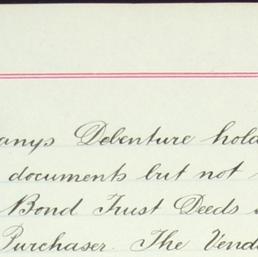 anys Debenture hold
documents but not
Bond Trust Deeds
Purchaser. The Vend